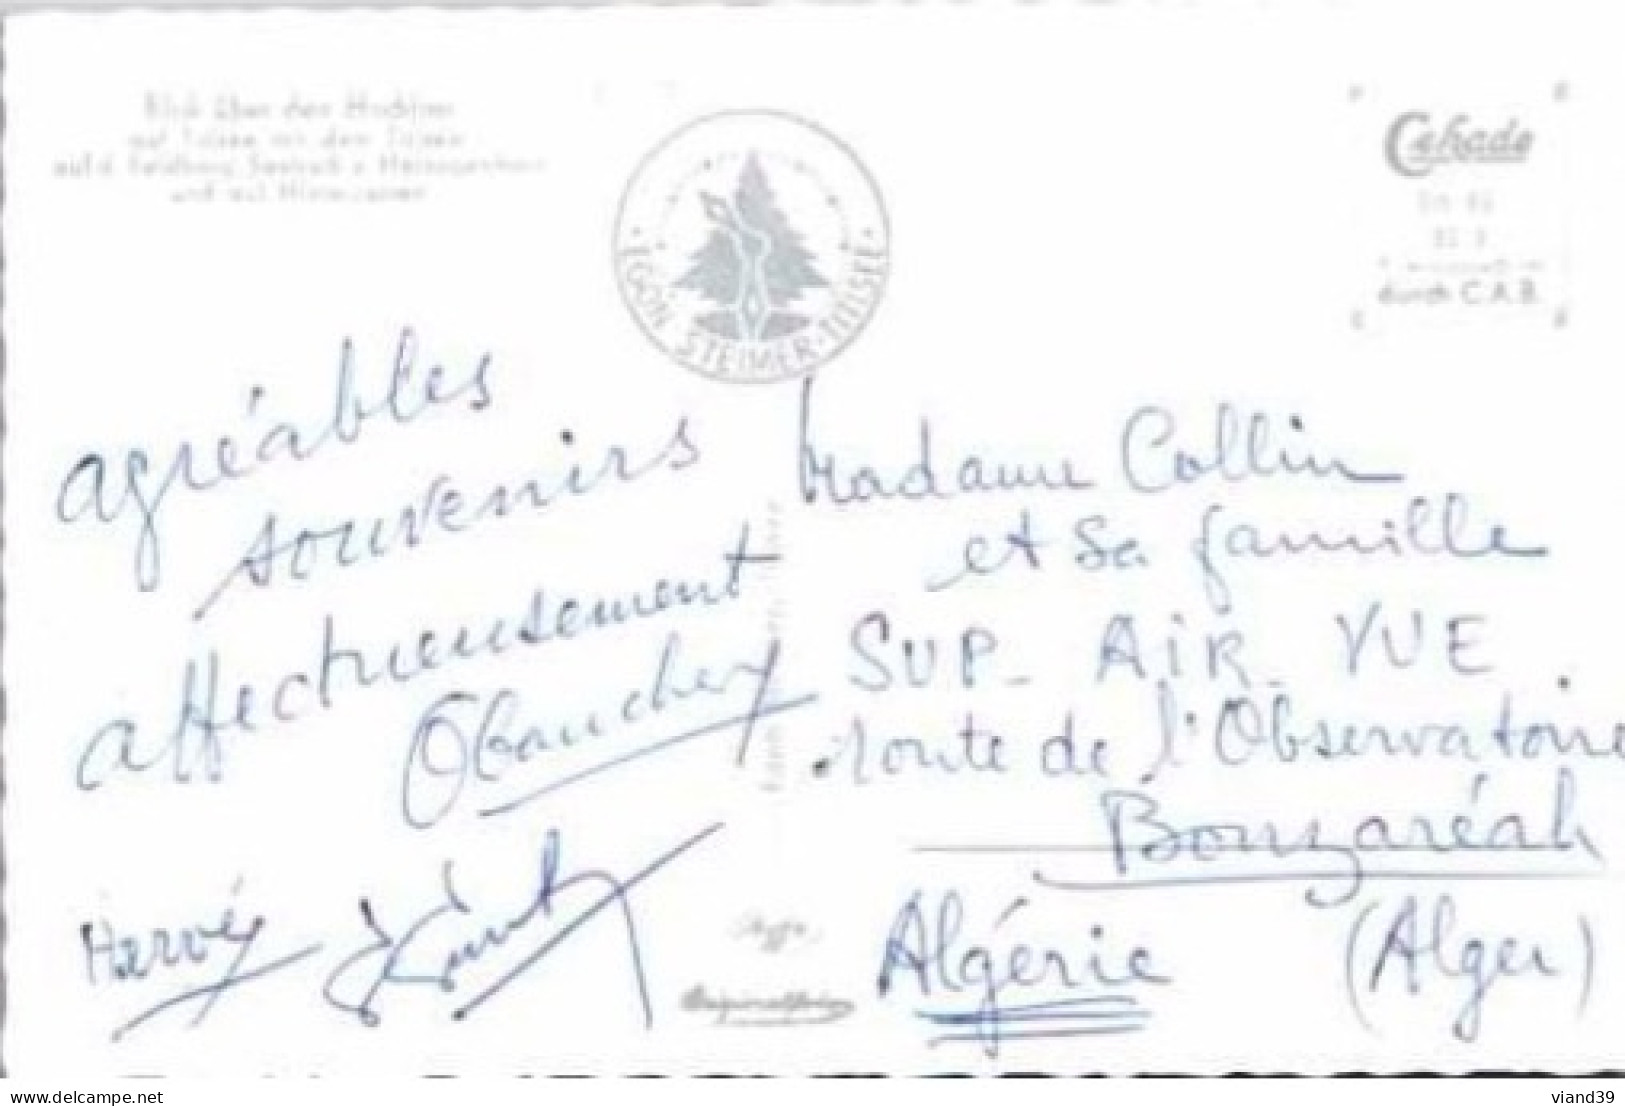 Blick über den Hochfirst
auf Titisee mit dem
auf d. Feldberg, Seebuck u.
und auf Hinterzarten
EGON STEIMER · TITISEE
Cekade
durch C.A.B.
agréables
souvenirs
affectueusement
Hervé
Madame Collin
et sa famille
SUP - AIR - VUE
route de l'Observatoire
Bouzaréah
Algérie (Alger)
delcampe.net
viand39